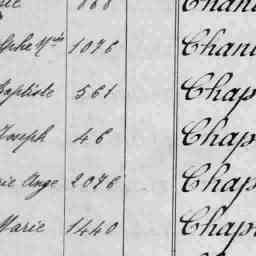 868 Chan
1076 Chan
Baptiste 561 Chap
Joseph 46 Chap
rie Ange 2076 Chap
Marie 1440 Chap